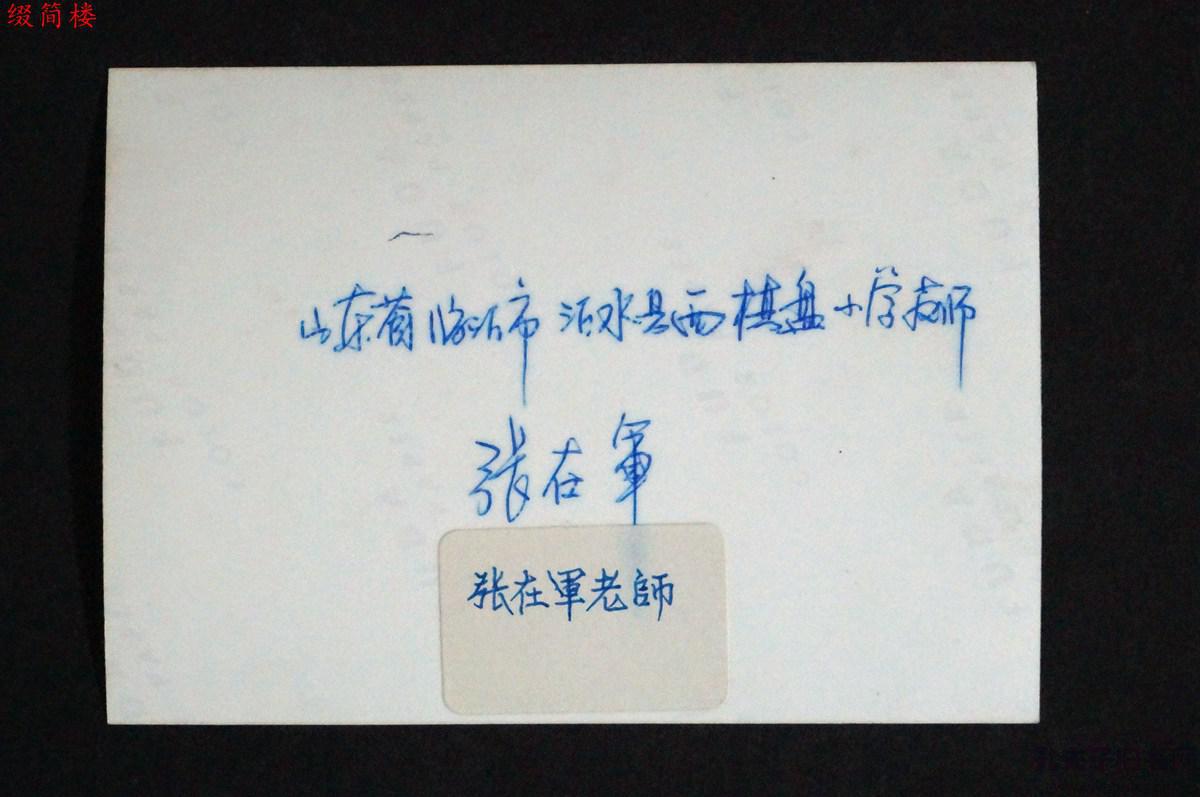 缀简楼
山东省临沂市沂水县西棋盘小学教师
张在軍
张在軍老師